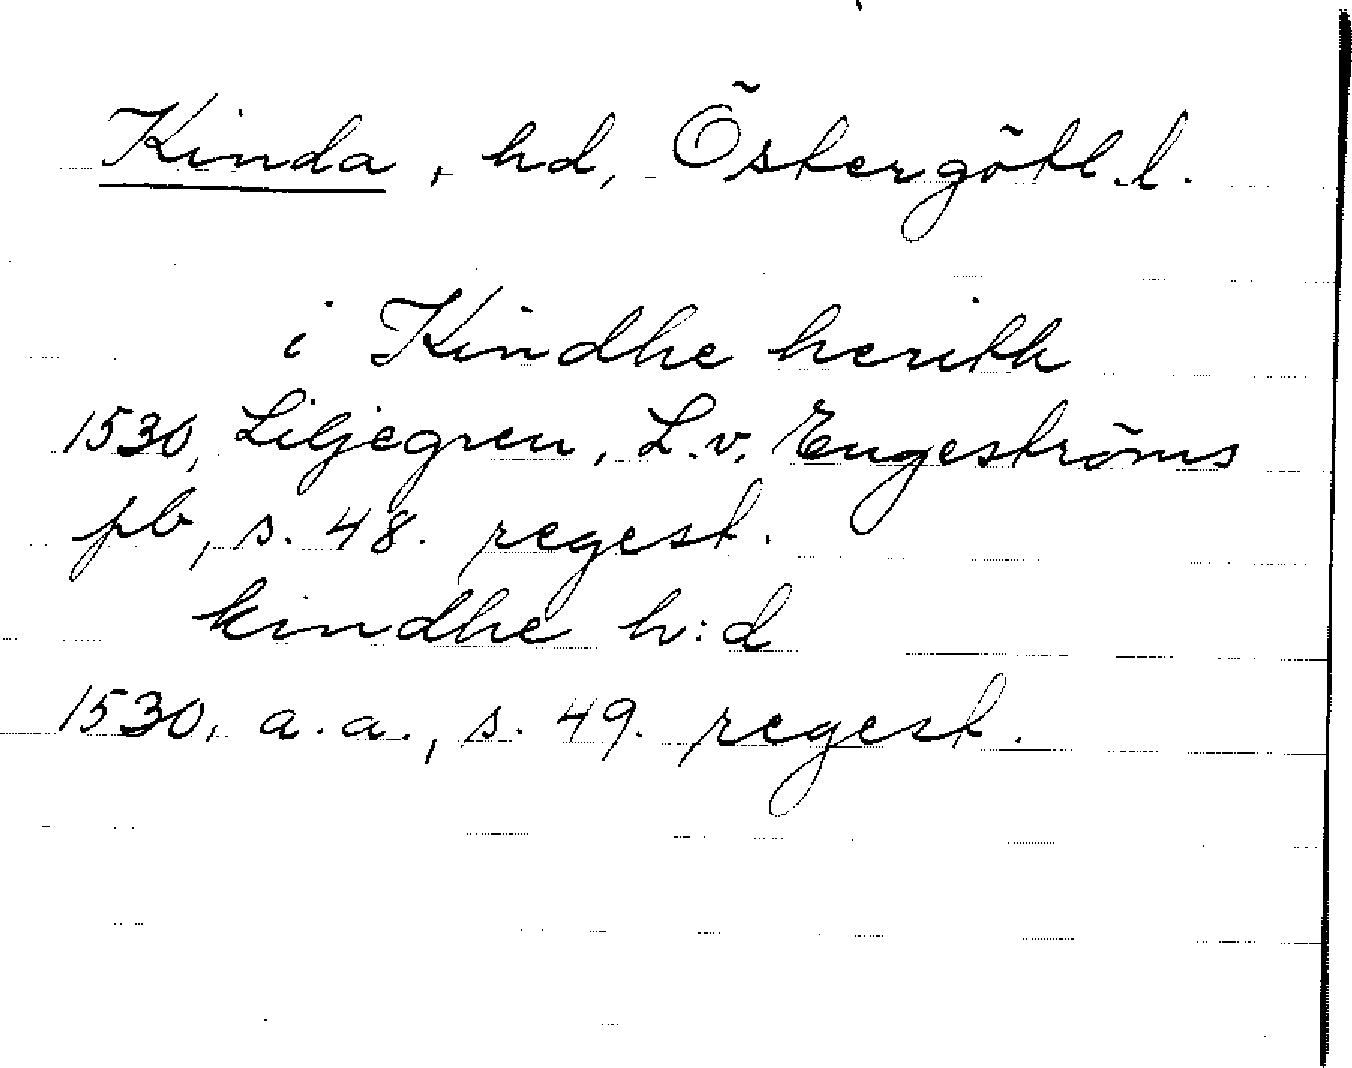 Kinda, hd, Östergötl. l.
i Kindhe herith
1530, Liljegren, L. v. Engeströms
pb, s. 48. regest.
kindhe h:d
1530, a. a., s. 49. regest.